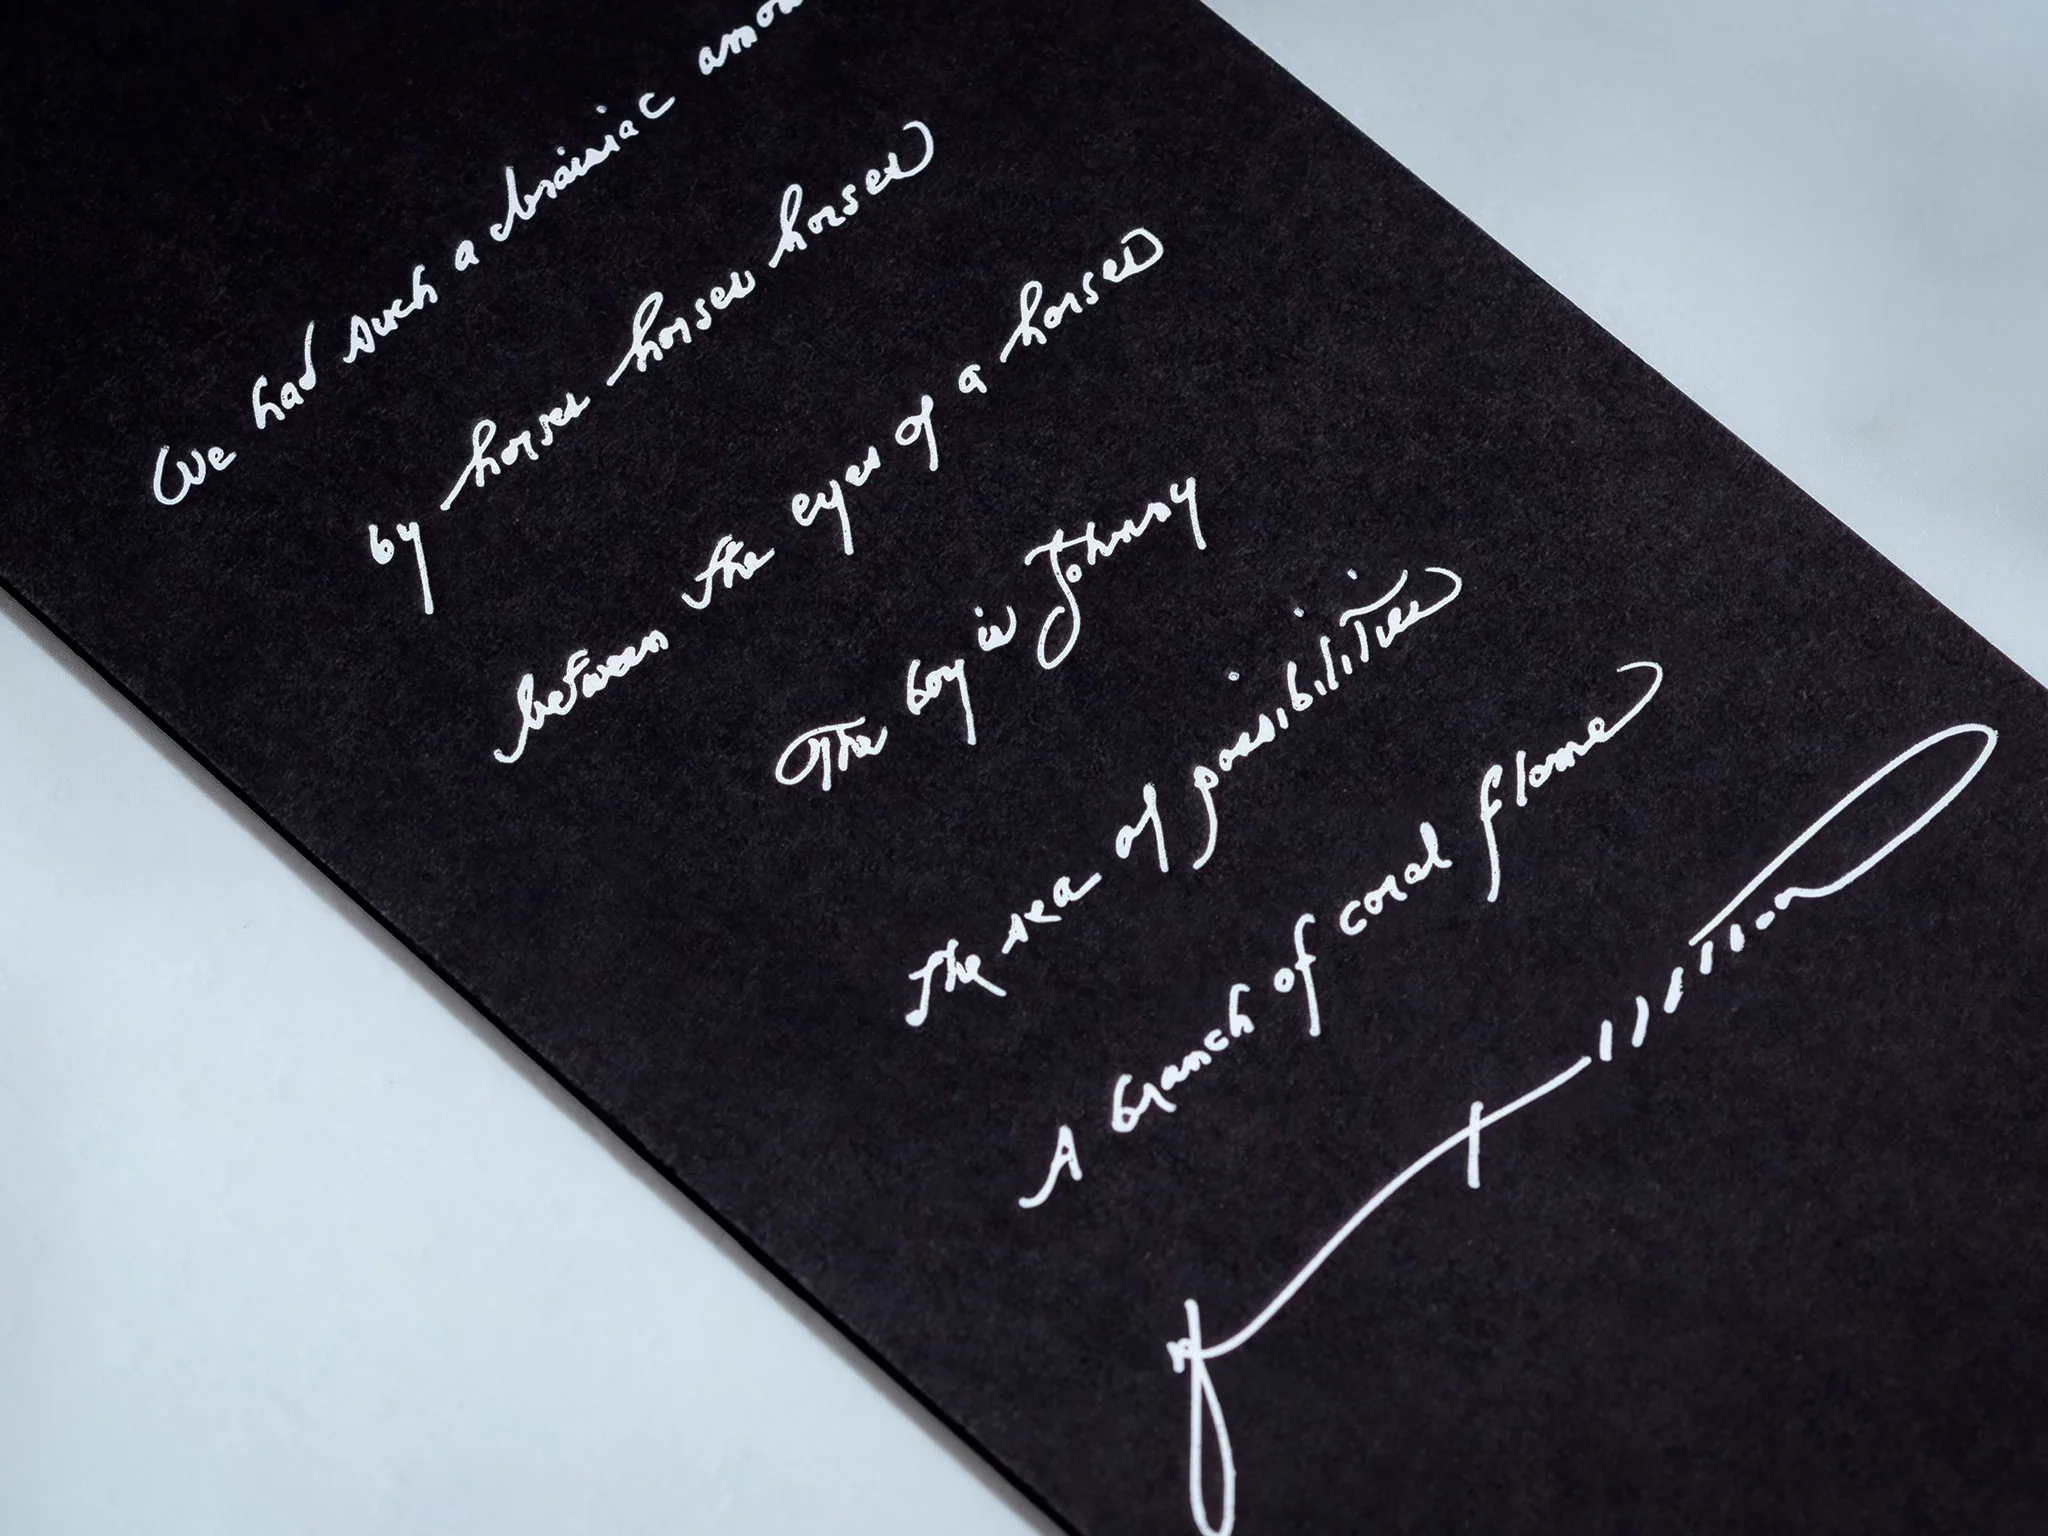 We had such a brainiac amon
by horses horses horses
between the eyes of a horses
The boy is Johnny
The sea of possibilities
A branch of coral flame